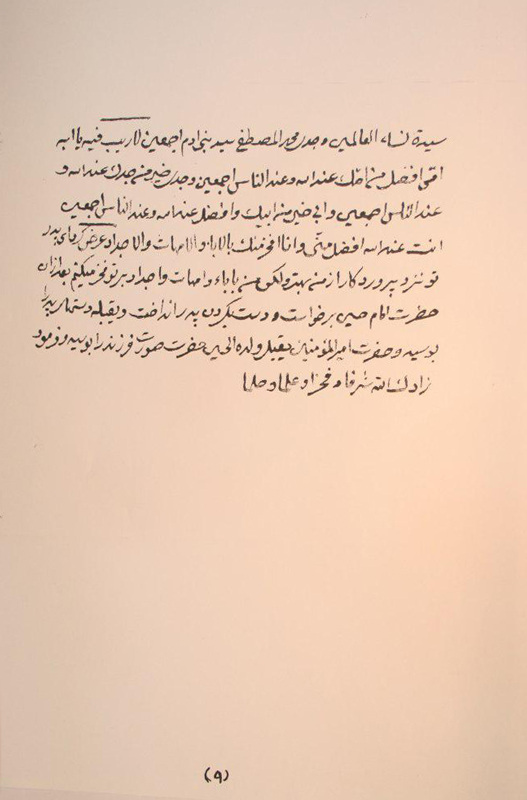 سیدة نساء العالمین وجدی محمد المصطفی سید بنی ادم اجمعین لاریب فیه یا ابه
امی افضل من امک عند الله و عند الناس اجمعین وجدی خیر من جدک عند الله و
عند الناس اجمعین وابی خیر من ابیک وافضل عند الله و عند الناس اجمعین
انت عند الله افضل منی وانا افخر منک بالاباء والامهات والاجداد عرض کرد ای پدر
تو نزد پروردکار از من بهتر ولکن من باباء وامهات واجداد بر تو فخر میکنم بعد ازان
حضرت امام حسین برخواست و دست بکردن پدر انداخت و یقبله دستها پدر را
بوسید و حضرت امیر المؤمنین یقبل ولده الحسین حضرت صورت فرزند را بوسید و فرمود
زادک الله شرفا و فخرا و علما و حلما
(۹)